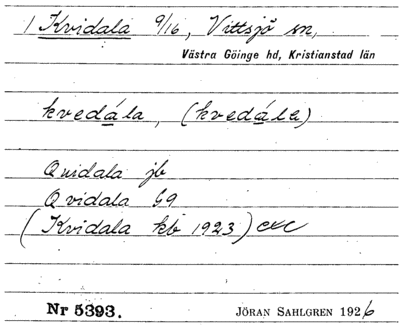 1 Kvidala 9/16, Vittsjö sn,
Västra Göinge hd, Kristianstad län
kvedála, (kvedálα)
Quidala jb
Qvidala G9
(Kvidala kb 1923)
Nr 5393. JÖRAN SAHLGREN 1926